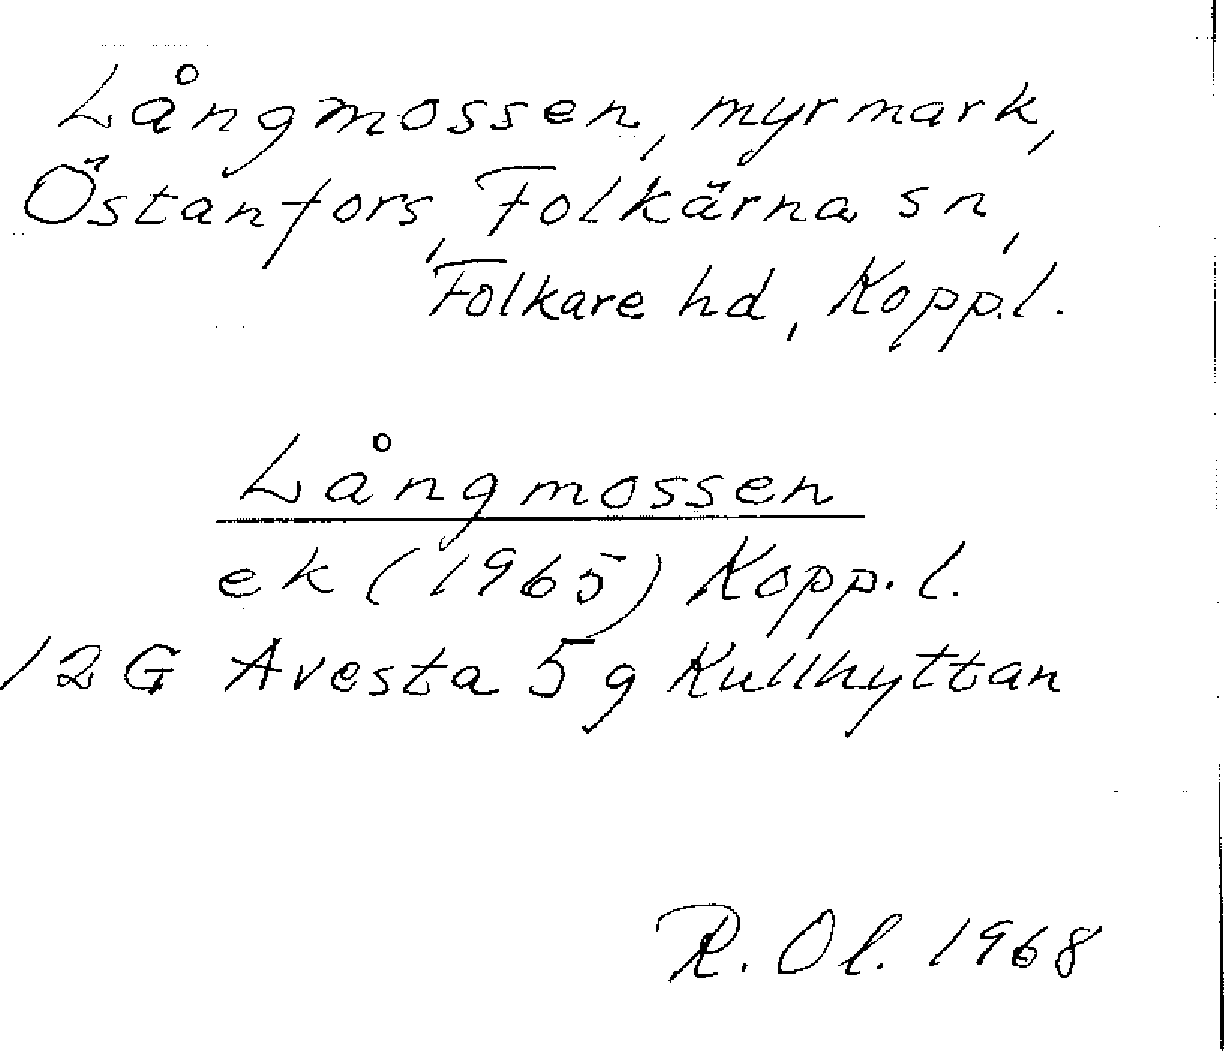 Långmossen, myrmark,
Östanfors, Folkärna sn,
Folkare hd, Kopp.l.
Långmossen
ek (1965) Kopp.l.
12G Avesta 5g Kullhyttan
R. Ol. 1968